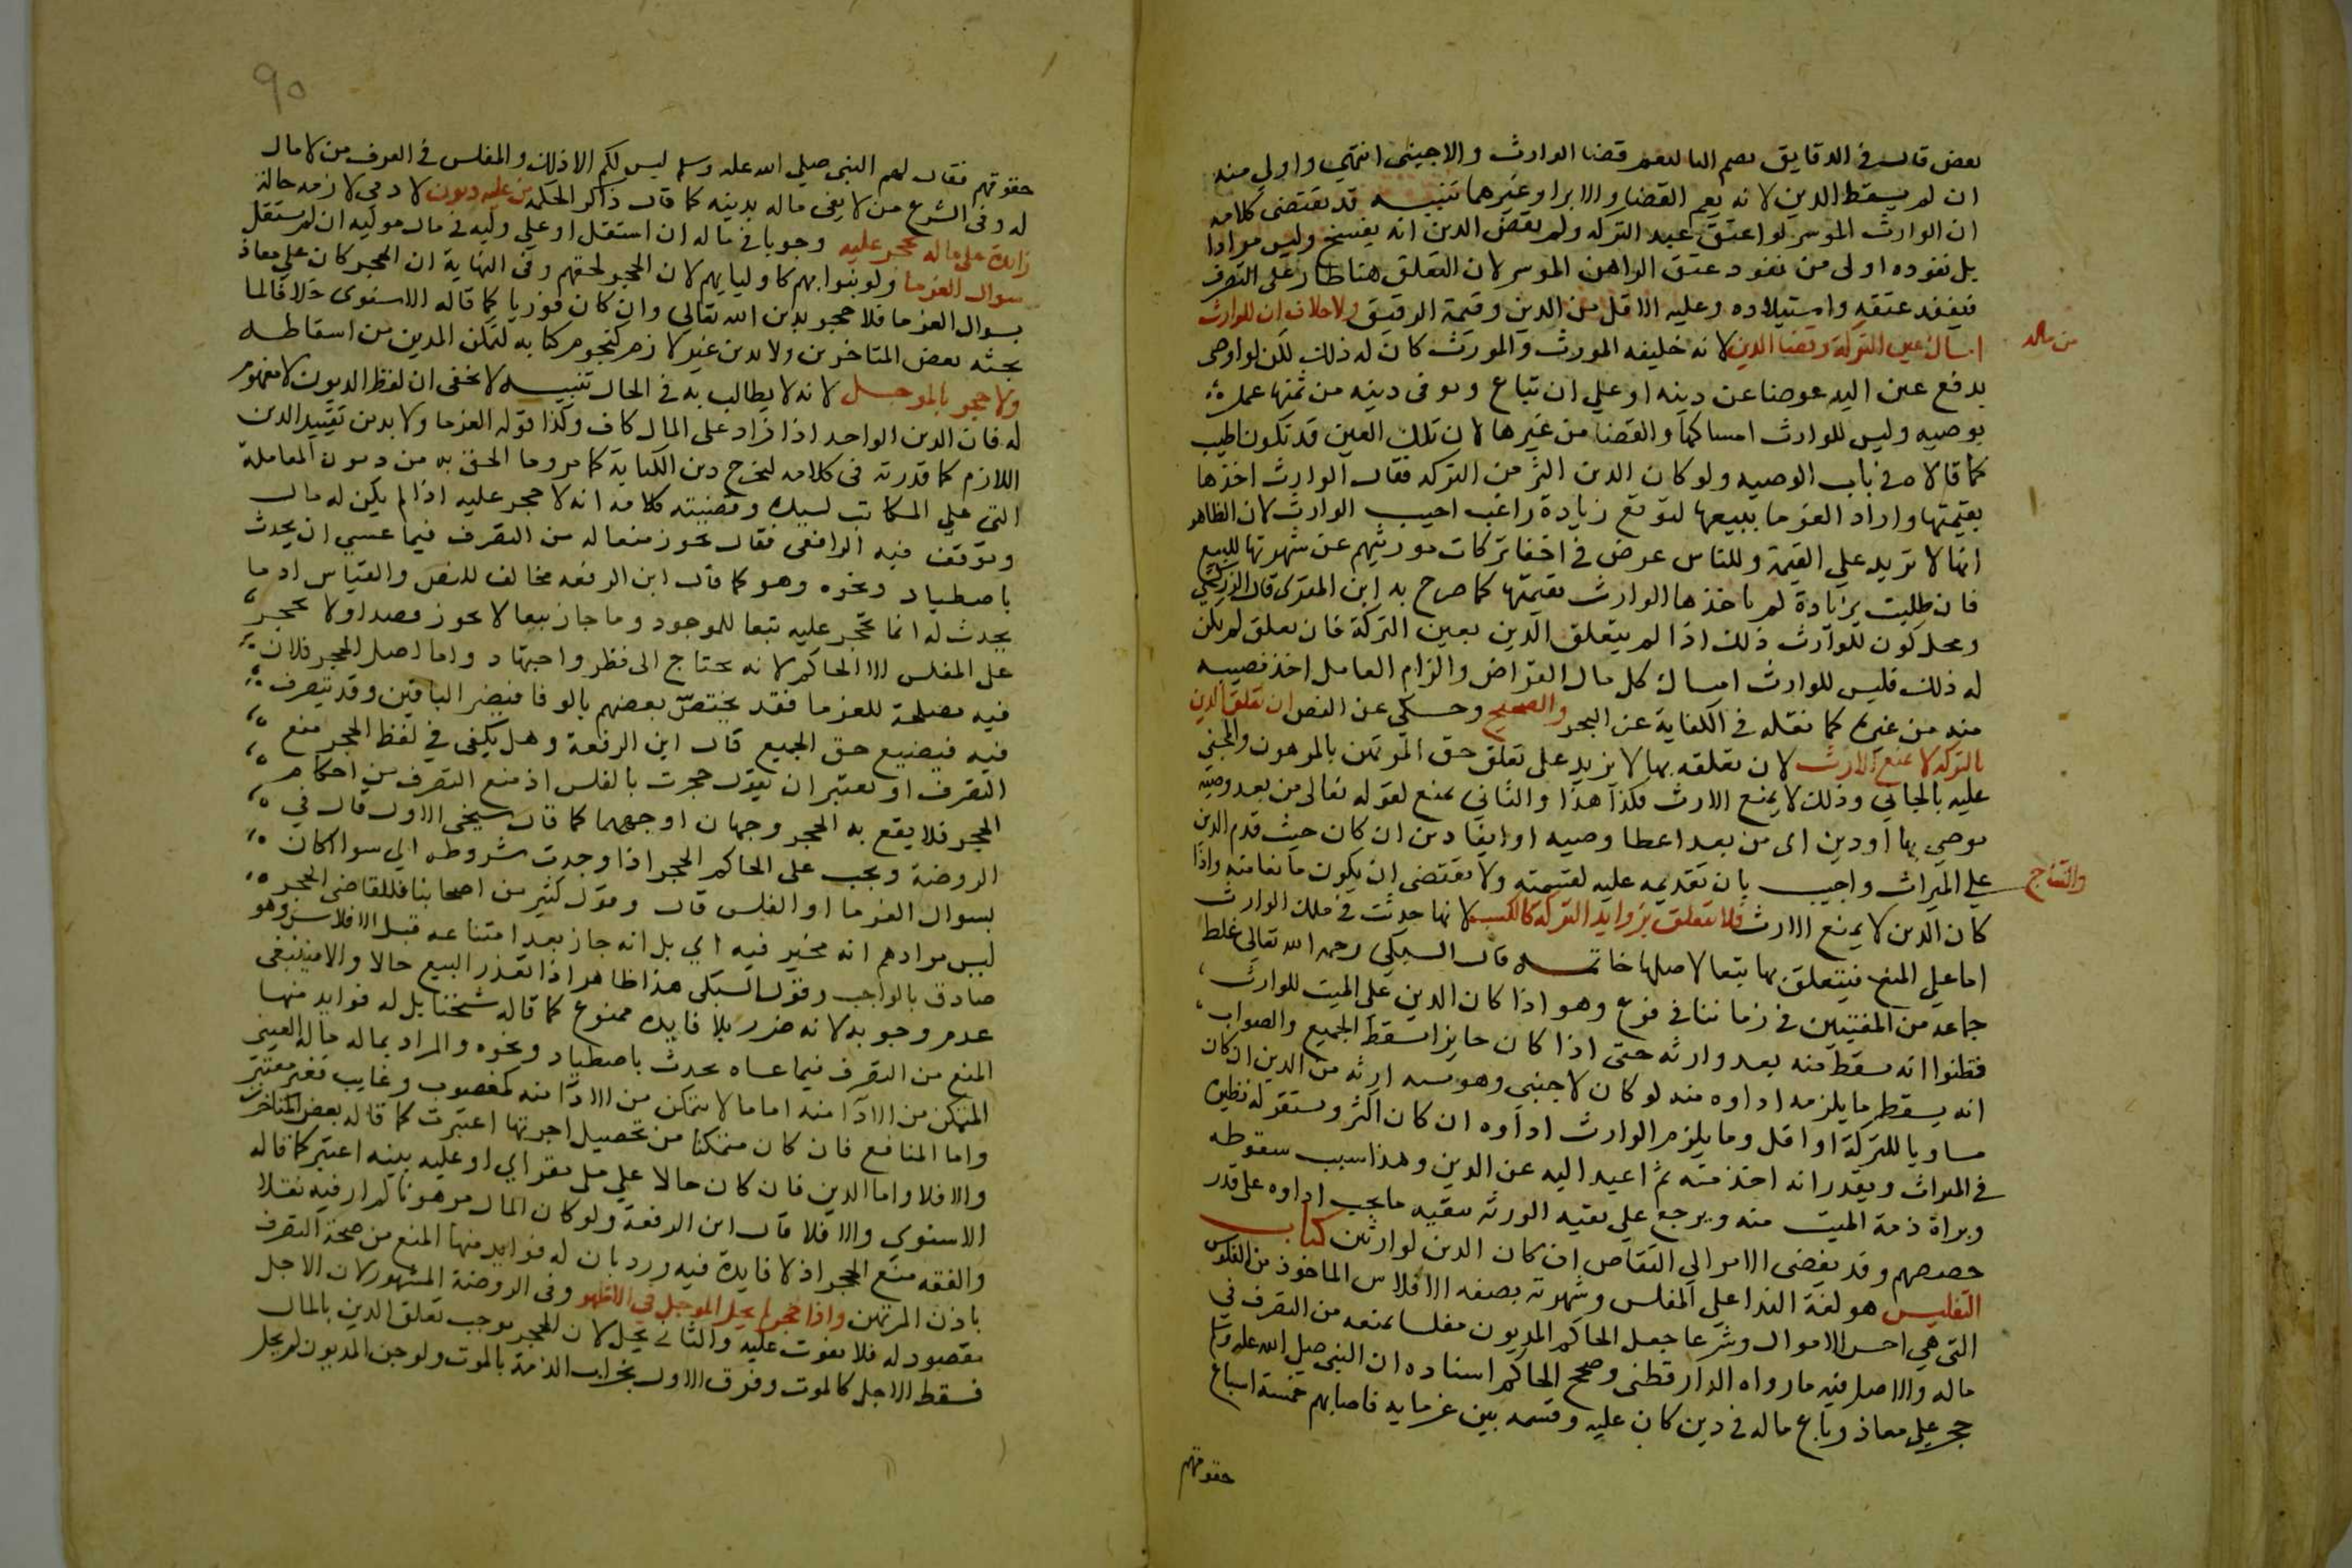 بعض قال في الدقايق بضم اليا ليعم قضا الوارث والاجنبي انتهي واولي منه
ان لم يسقط الدين لانه يعم القضا والابرا وغيرهما تنبيه قد يقتضي كلامه
ان الوارث الموسر لو اعتق عبد التركه ولم يقض الدين انه يفسخ وليس مرادا
بل نفوذه اولى من نفوذ عتق الراهن الموسر لان التعلق هنا طار على التصرف
فينفذ عتقه واستيلاده وعليه الاقل من الدين وقيمة الرقيق ولا خلاف ان للوارث
امساك عين التركة وقضا الدين لانه خليفه المورث والمورث كان له ذلك لكن لو اوصى
من ماله
بدفع عين اليه عوضا عن دينه او علي ان تباع ويوفى دينه من ثمنها عمل
بوصيه وليس للوارث امساكها والقضا من غيرها لان تلك العين قد تكون اطيب
كما قالاه في باب الوصيه ولو كان الدين اكثر من التركه فقال الوارث اخذها
بقيمتها واراد الغرما بيعها لتوقع زيادة راغب اجيب الوارث لان الظاهر
انها لا تزيد علي القيمة وللناس عرض في اخفا تركات مورثيهم عن شهرتها للبيع
فان طلبت بزيادة لم ياخذها الوارث بقيمتها كما صرح به ابن المقرى قال الزركشي
ومحل كون للوارث ذلك اذا لم يتعلق الدين بعين التركة فان تعلق لم يكن
له ذلك فليس للوارث امساك كل مال القراض والزام العامل اخذ نصيبه
منه من غيره كما نقله في الكفاية عن البحر والصحيح وحكي عن النص ان تعلق الدين
بالتركه لا يمنع الارث لان تعلقه بها لا يزيد على تعلق حق المرتهن بالمرهون والمجني
عليه بالجاني وذلك لا يمنع الارث فكذا هذا والثاني يمنع لقوله تعالى من بعد وصيه
يوصي بها او دين اى من بعد اعطا وصيه او ايفا دين ان كان حيث قدم الدين
علي الميراث واجيب بان تقديمه عليه لقسمته ولا يقتضى ان يكون مانعا منه واذا
كان الدين لا يمنع الارث فلا يتعلق بزوايد التركة كالكسب لانها حدثت في ملك الوارث
والنتاج
اما علي المنع فيتعلق بها تبعا لاصلها خاتمه قال السبكي رحمه الله تعالى غلط
جماعة من المفتيين في زماننا في فرع وهو اذا كان الدين على الميت للوارث
فظنوا انه يسقط منه بعد وارثه حتى اذا كان حايزا سقط الجميع والصواب
انه يسقط ما يلزمه اداوه منه لو كان لاجنبي وهو نسبه ارثه من الدين ان كان
مساويا للتركة او اقل وما يلزم الوارث اداوه ان كان اكثر ويستقر له نظيره
في الميراث ويقدر انه اخذ منه ثم اعيد اليه عن الدين وهذا سبب سقوطه
وبراة ذمة الميت منه ويرجع علي بقيه الورثه ببقيه ما يجب اداوه على قدر
حصصهم وقد يفضى الامر الي التقاص ان كان الدين لوارثين كتاب
التفليس هو لغة الندا علي المفلس وشهرته بصفه الافلاس الماخوذ من الفلوس
التي هي اخس الاموال وشرعا جعل الحاكم المديون مفلسا بمنعه من التصرف في
ماله والاصل فيه ما رواه الدارقطني وصحح الحاكم اسناده ان النبي صلي الله عليه وسلم
حجر علي معاذ وباع ماله في دين كان عليه وقسمه بين غرمايه فاصابهم خمسة اسباع
حقوقهم
٩٠
حقوقهم فقال لهم النبي صلي الله عليه وسلم ليس لكم الا ذلك والمفلس في العرف من لا مال
له وفي الشرع من لا يفي ماله بدينه كما قال ذاكر الحكمه من عليه ديون لادمي لازمه حالة
زايدة على ماله يحجر عليه وجوبا في ماله ان استقل او علي وليه في مال موليه ان لم يستقل
بسوال الغرما ولو بنوابهم كاوليايهم لان الحجر لحقهم وفي النهاية ان الحجر كان علي معاذ
بسوال الغرما فلا حجر بدين الله تعالي وان كان فوريا كما قاله الاسنوى خلافا لما
بحثه بعض المتاخرين ولا بدين غير لازم كنجوم كتابه لتمكن المدين من اسقاطه
ولا حجر بالموجل لانه لا يطالب به في الحال تنبيه لا يخفى ان لفظ الديون لا مفهوم
له فان الدين الواحد اذا زاد على المال كاف وكذا قوله الغرما ولا بد من تقييد الدين
اللازم كما قدرته في كلامه ليخرج دين الكتابة كما مر وما الحق به من ديون المعاملة
التي علي المكاتب لسيده وقضيته كلامه انه لا حجر عليه اذا لم يكن له مال
وتوقف فيه الرافعى فقال يجوز منعا له من التصرف فيما عسي ان يحدث
باصطياد ونحوه وهو كما قال ابن الرفعه مخالف للنص والقياس اذ ما
يحدث له انما يحجر عليه تبعا للموجود وما جاز تبعا لا يجوز قصدا ولا يحجر
على المفلس الا الحاكم لانه يحتاج الى نظر واجتهاد واما اصل الحجر فلان
فيه مصلحة للغرما فقد يختص بعضهم بالوفا فيضر الباقين وقد يتصرف
فيه فيضيع حق الجميع قال ابن الرفعة وهل يكفي في لفظ الحجر منع
التصرف او يعتبر ان يقول حجرت بالفلس اذ منع التصرف من احكام
الحجر فلا يقع به الحجر وجهان اوجههما كما قال شيخي الاول قال في
الروضة ويجب على الحاكم الحجر اذا وجدت شروطه اي سوا اكان
بسوال الغرما او المفلس قال وقول كثير من اصحابنا فللقاضى الحجر
ليس مرادهم انه مخير فيه اي بل انه جاز بعد امتناعه قبل الافلاس وهو
صادق بالواجب وقول السبكى هذا ظاهر اذا تعذر البيع حالا والا فينبغي
عدم وجوبه لانه ضرر بلا فايده ممنوع كما قاله شيخنا بل له فوايد منها
المنع من التصرف فيما عساه يحدث باصطياد ونحوه والمراد بماله ماله العيني
المتمكن من الادا منه اما ما لا يتمكن من الادا منه كمغصوب وغايب فغير معتبر
واما المنافع فان كان متمكنا من تحصيل اجرتها اعتبرت كما قاله بعض المتاخرين
والا فلا واما الدين فان كان حالا علي ملي مقر اي او عليه بينه اعتبر كما قاله
الاسنوي والا فلا قال ابن الرفعة ولو كان المال مرهونا لم ار فيه نقلا
والفقه منع الحجر اذ لا فايدة فيه ورد بان له فوايد منها المنع من صحة التصرف
باذن المرتهن واذا حجر لم يحل الموجل في الاظهر وفى الروضة المشهور لان الاجل
مقصود له فلا يفوت عليه والثاني يحل لان الحجر يوجب تعلق الدين بالمال
فسقط الاجل كالموت وفرق الاول بخراب الذمة بالموت ولو جن المديون لم يحل